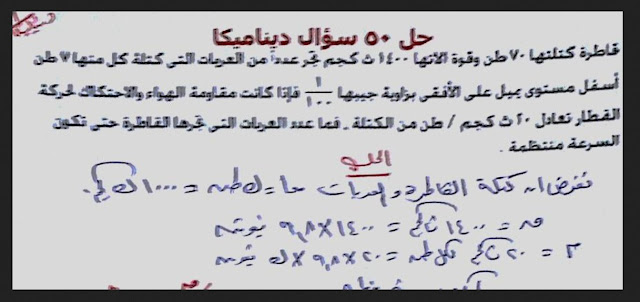 حل ٥٠ سؤال ديناميكا
قاطرة كتلتها ٧٠ طن وقوة آلاتها ١٤٠٠ ث كجم تجر عدداً من العربات التى كتلة كل منها ٧ طن
أسفل مستوى يميل على الأفقى بزاوية جيبها ١/١٠٠ فإذا كانت مقاومة الهواء والاحتكاك لحركة
القطار تعادل ٢٠ ث كجم / طن من الكتلة . فما عدد العربات التى تجرها القاطرة حتى تكون
السرعة منتظمة .
الحل
نفرض أن كتلة القاطرة و العربات معاً = ك طن = ١٠٠٠ ك كجم .
م = ١٤٠٠ ث كجم = ١٤٠٠ × ٩,٨ نيوتن
م = ٢٠ ث كجم لكل طن = ٢٠ × ٩,٨ × ك نيوتن